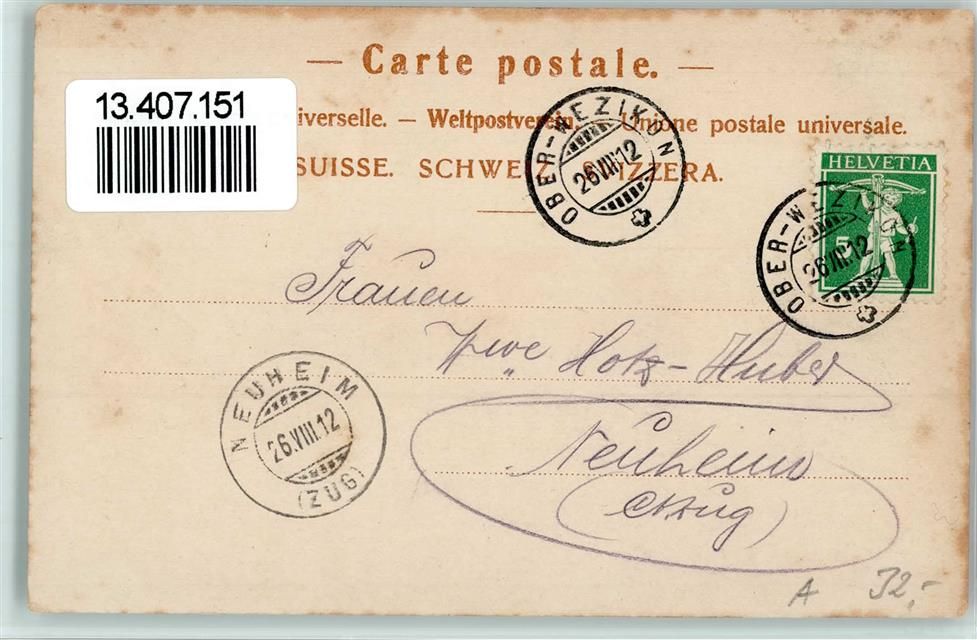 — Carte postale. —
13.407.151
iverselle. — Weltpostverein — Unione postale universale.
SUISSE. SCHWEIZ. SVIZZERA.
OBER-WEZIKON
26.VIII.12
HELVETIA
5
OBER-WEZIKON
26.VIII.12
Frauen
Wwe Hotz-Huber
NEUHEIM
26.VIII.12
(ZUG)
Neuheim
(Ktzug)
A 32,-